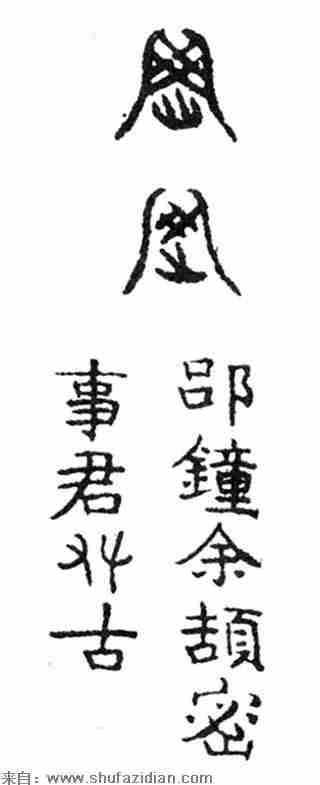 郘鐘余頡密
事君古
来自：www.shufazidian.com